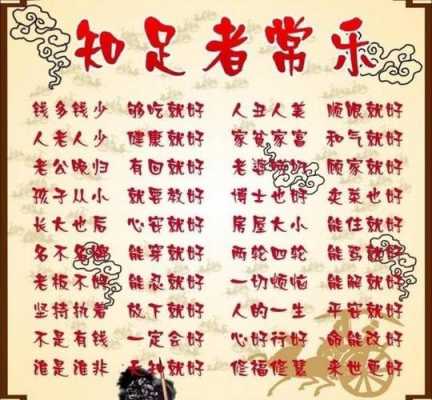 知足者常乐
钱多钱少 够吃就好 人丑人美 顺眼就好
人老人少 健康就好 家贫家富 和气就好
老公晚归 有回就好 老婆 顾家就好
孩子从小 就要教好 博士也好 卖菜也好
长大也后 心安就好 房屋大小 能住就好
名不名牌 能穿就好 两轮四轮 能驾就好
老板不好 能忍就好 一切烦恼 能解就好
坚持执着 放下就好 人的一生 平安就好
不是有钱 一定会好 心好行好 命能改好
谁是谁非 天知就好 修福修慧 来世更好